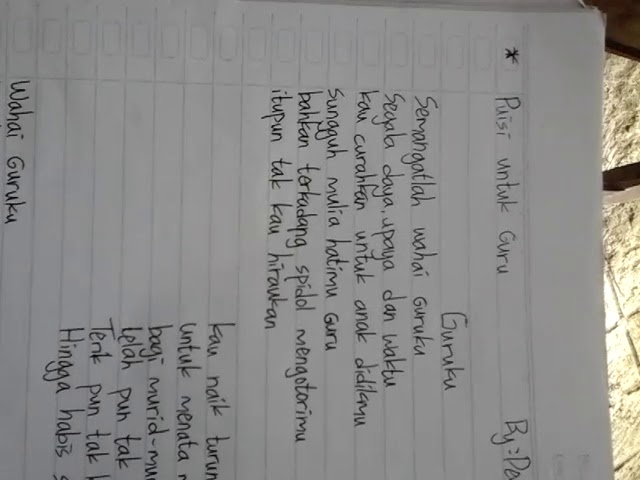 * Puisi untuk Guru
By: De
Guruku
Semangatlah wahai Guruku
Segala daya, upaya dan waktu
kau curahkan untuk anak didikmu
Sungguh mulia hatimu Guru
bahkan terkadang spidol mengotorimu
itupun tak kau hiraukan
kau naik turun
untuk menata
bagi murid-mu
Lelah pun tak
Terik pun tak
Hingga habis s
Wahai Guruku